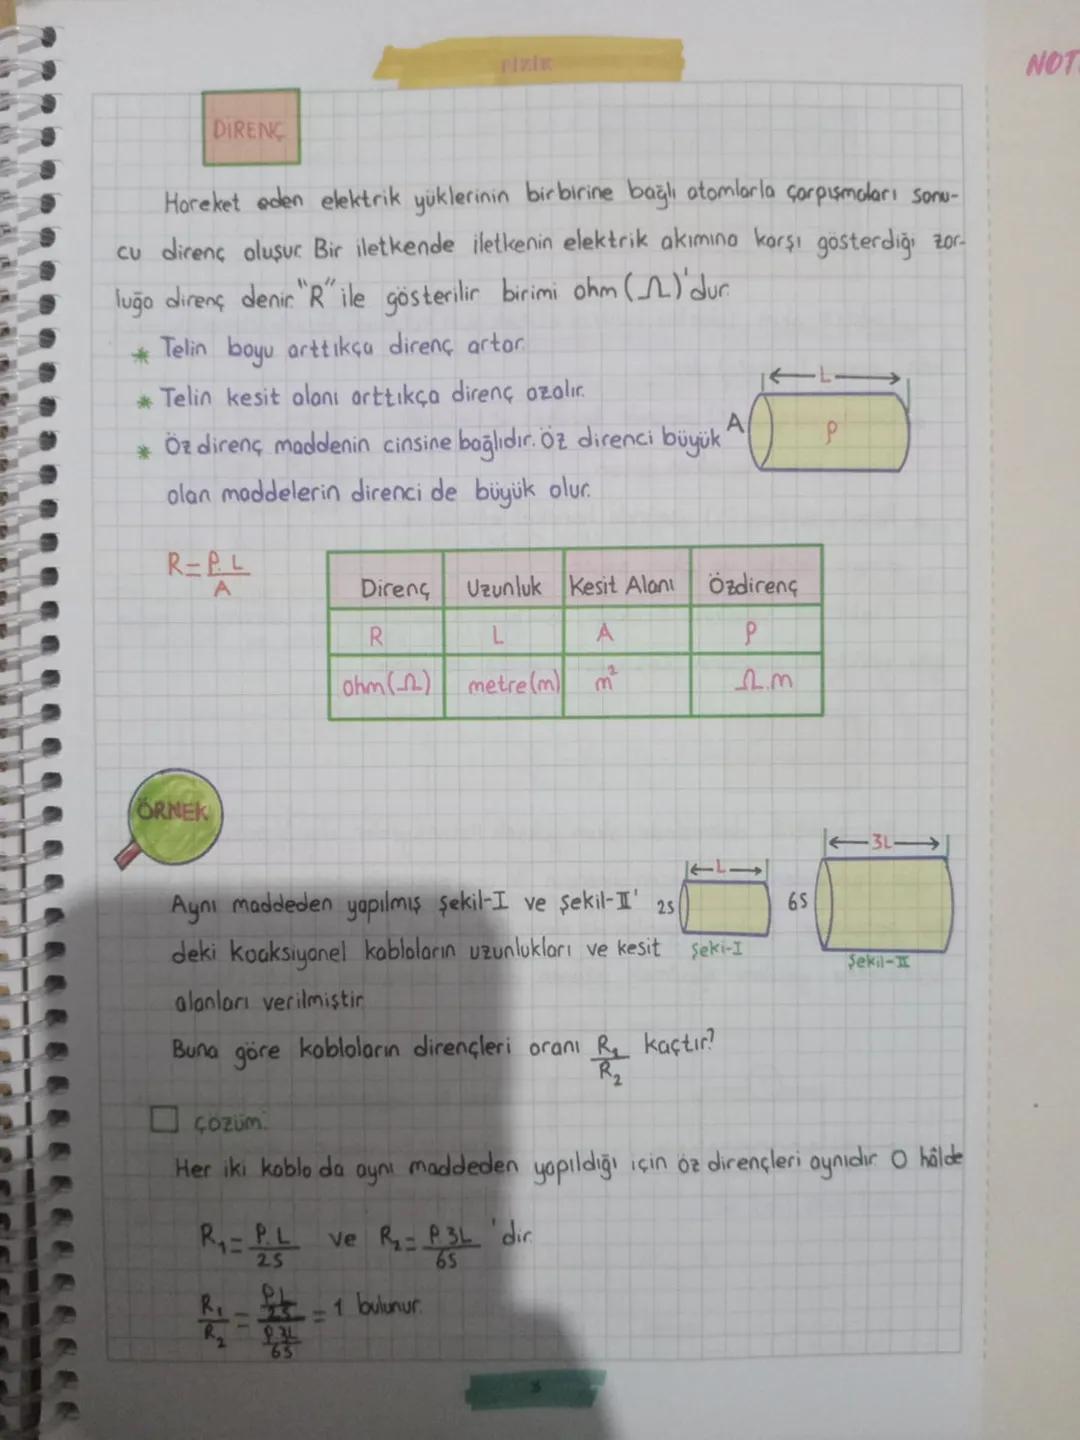 FİZİK
NOT
DİRENÇ
Hareket eden elektrik yüklerinin birbirine bağlı atomlarla çarpışmaları sonu-
cu direnç oluşur. Bir iletkende iletkenin elektrik akımına karşı gösterdiği zor-
luğa direnç denir. "R" ile gösterilir birimi ohm (Ω)'dur.
* Telin boyu arttıkça direnç artar.
* Telin kesit alanı arttıkça direnç azalır.
* Öz direnç maddenin cinsine bağlıdır. Öz direnci büyük
olan maddelerin direnci de büyük olur.
L
A
ρ
R = ρ.L / A
Direnç Uzunluk Kesit Alanı Özdirenç
R L A ρ
ohm(Ω) metre(m) m² Ω.m
ÖRNEK
L
3L
Aynı maddeden yapılmış şekil-I ve şekil-II'
2S
6S
deki koaksiyanel kabloların uzunlukları ve kesit
Şeki-I
Şekil-II
alanları verilmiştir.
Buna göre kabloların dirençleri oranı R₁/R₂ kaçtır?
Çözüm:
Her iki kablo da aynı maddeden yapıldığı için öz dirençleri aynıdır. O hâlde
R₁ = ρ.L / 2S ve R₂ = ρ.3L / 6S 'dir.
R₁/R₂ = (ρ.L / 2S) / (ρ.3L / 6S) = 1 bulunur.